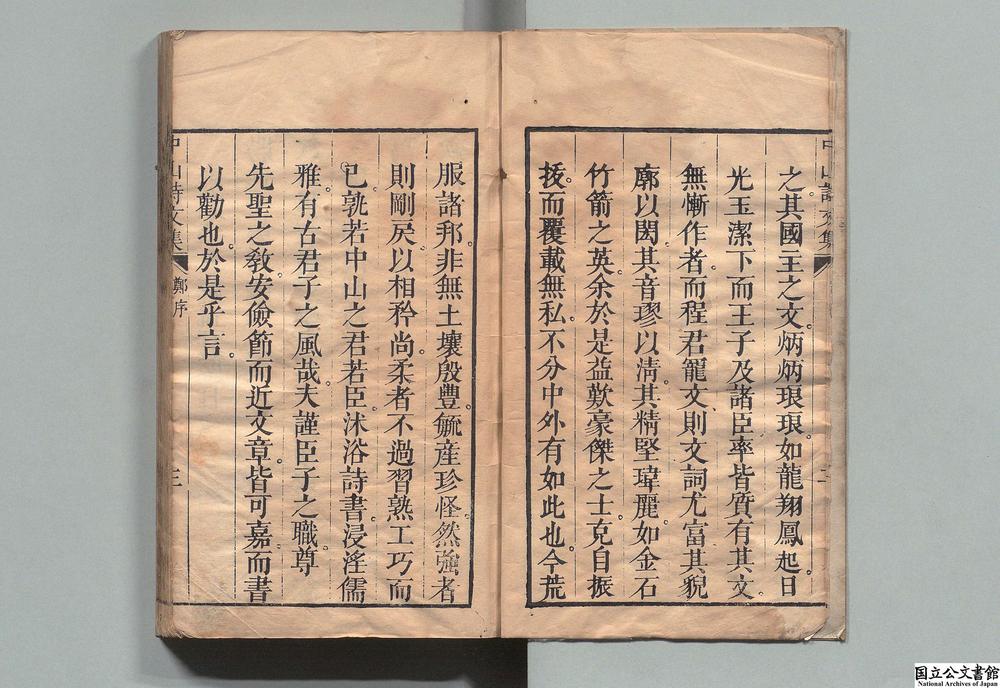 之其國王之文。炳炳琅琅。如龍翔鳳起。日
光玉潔。下而王子及諸臣。率皆質有其文。
無慚作者。而程君寵文則文詞尤富。其貌
廓以閎。其音璆以淸。其精堅瑋麗。如金石
竹箭之英。余於是益歎豪傑之士克自振
拔。而覆載無私。不分中外有如此也。今荒
服諸邦。非無土壤殷豐。毓産珍怪。然強者
則剛戾以相矜尚。柔者不過習熟工巧而
已。孰若中山之君若臣。沭浴詩書。浸淫儒
雅。有古君子之風哉。夫謹臣子之職。尊
先聖之敎。安儉節而近文章。皆可嘉而書
以勸也。於是乎言。
中山詩文集
鄭序
三
中山詩文集
二
国立公文書館
National Archives of Japan